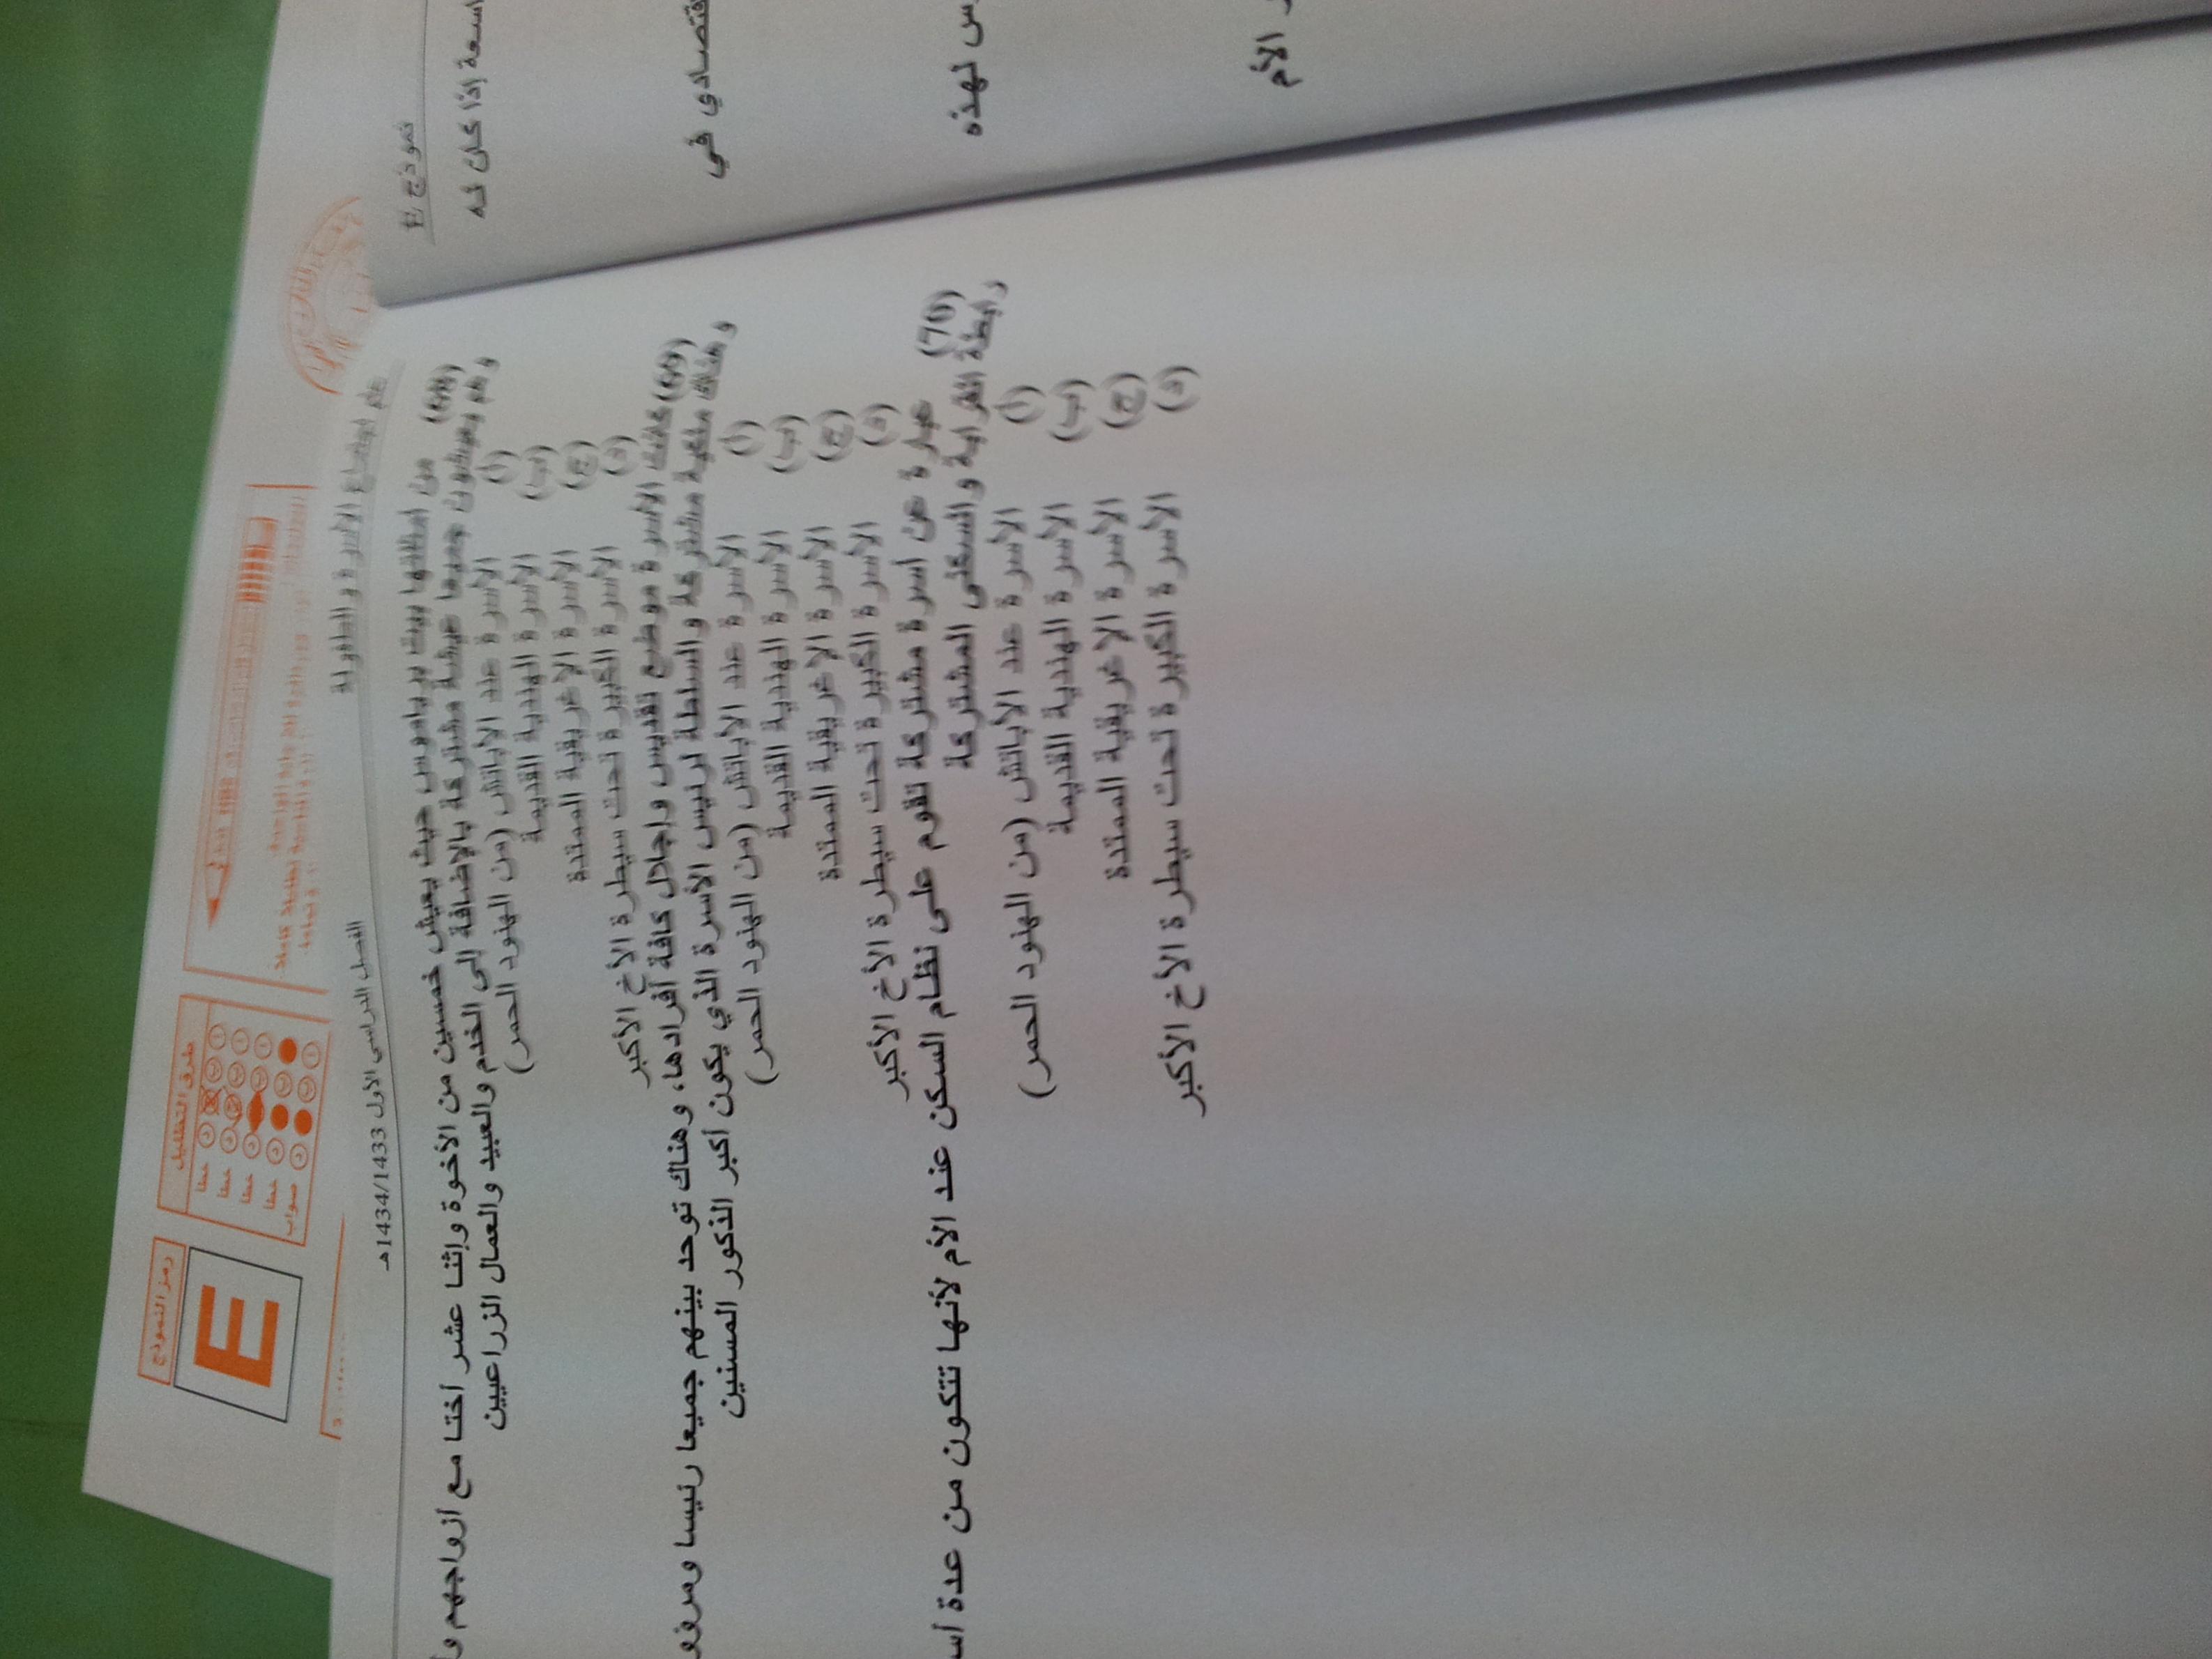 رمز النموذج
E
طرق التظليل
خطأ
خطأ
خطأ
خطأ
صواب
علم اجتماع الأسرة والطفولة
الفصل الدراسي الأول 1434/1433هـ
(68) من امثلتها بيت برياموس حيث يعيش خمسين من الأخوة وإثنا عشر أختا مع أزواجهم
وهم ويعيشون جميعا عيشة مشتركة بالإضافة إلى الخدم والعبيد والعمال الزراعيين
(أ) الأسرة عند الأباتش (من الهنود الحمر)
(ب) الأسرة الهندية القديمة
(ج) الأسرة الاغريقية الممتدة
(د) الأسرة الكبيرة تحت سيطرة الأخ الأكبر
(69) كانت الأسرة موضع تقديس وإجلال كافة أفرادها، وهناك توحد بينهم جميعا رئيسا ومرؤو
وهناك ملكية مشتركة والسلطة لرئيس الأسرة الذي يكون أكبر الذكور المسنين
(أ) الأسرة عند الأباتش (من الهنود الحمر)
(ب) الأسرة الهندية القديمة
(ج) الأسرة الاغريقية الممتدة
(د) الأسرة الكبيرة تحت سيطرة الأخ الأكبر
(70) عبارة عن أسرة مشتركة تقوم على نظام السكن عند الأم لأنها تتكون من عدة أس
رابطة القرابة والسكنى المشتركة
(أ) الأسرة عند الأباتش (من الهنود الحمر)
(ب) الأسرة الهندية القديمة
(ج) الأسرة الاغريقية الممتدة
(د) الأسرة الكبيرة تحت سيطرة الأخ الأكبر
نموذج E
اسعة إذا كان له
قتصادي في
س لهذه
ر الأم